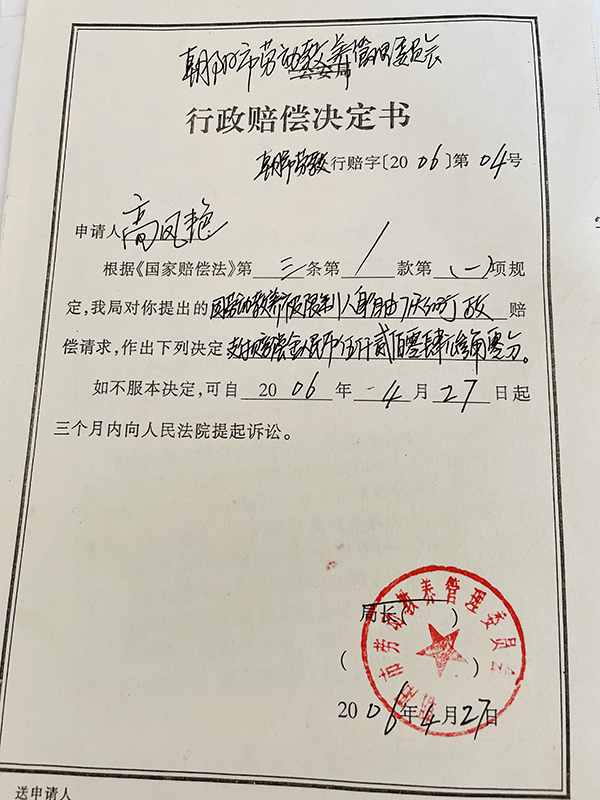 朝阳市劳动教养管理委员会
公安局
行政赔偿决定书
朝阳劳教行赔字〔2006〕第04号
申请人高凤艳
根据《国家赔偿法》第三条第/款第(一)项规
定,我局对你提出的因劳动教养被限制人身自由 赔
偿请求,作出下列决定支付赔偿金人民币伍仟贰佰零肆元 角零分。
如不服本决定,可自2006年4月27日起
三个月内向人民法院提起诉讼。
局长( )
( )
市劳动教养管理委员会
2006年4月27日
送申请人